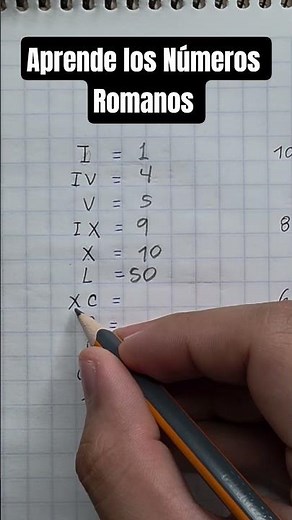 Aprende los Números
Romanos
I = 1
IV = 4
V = 5
IX = 9
X = 10
L = 50
XC =
=
10
8